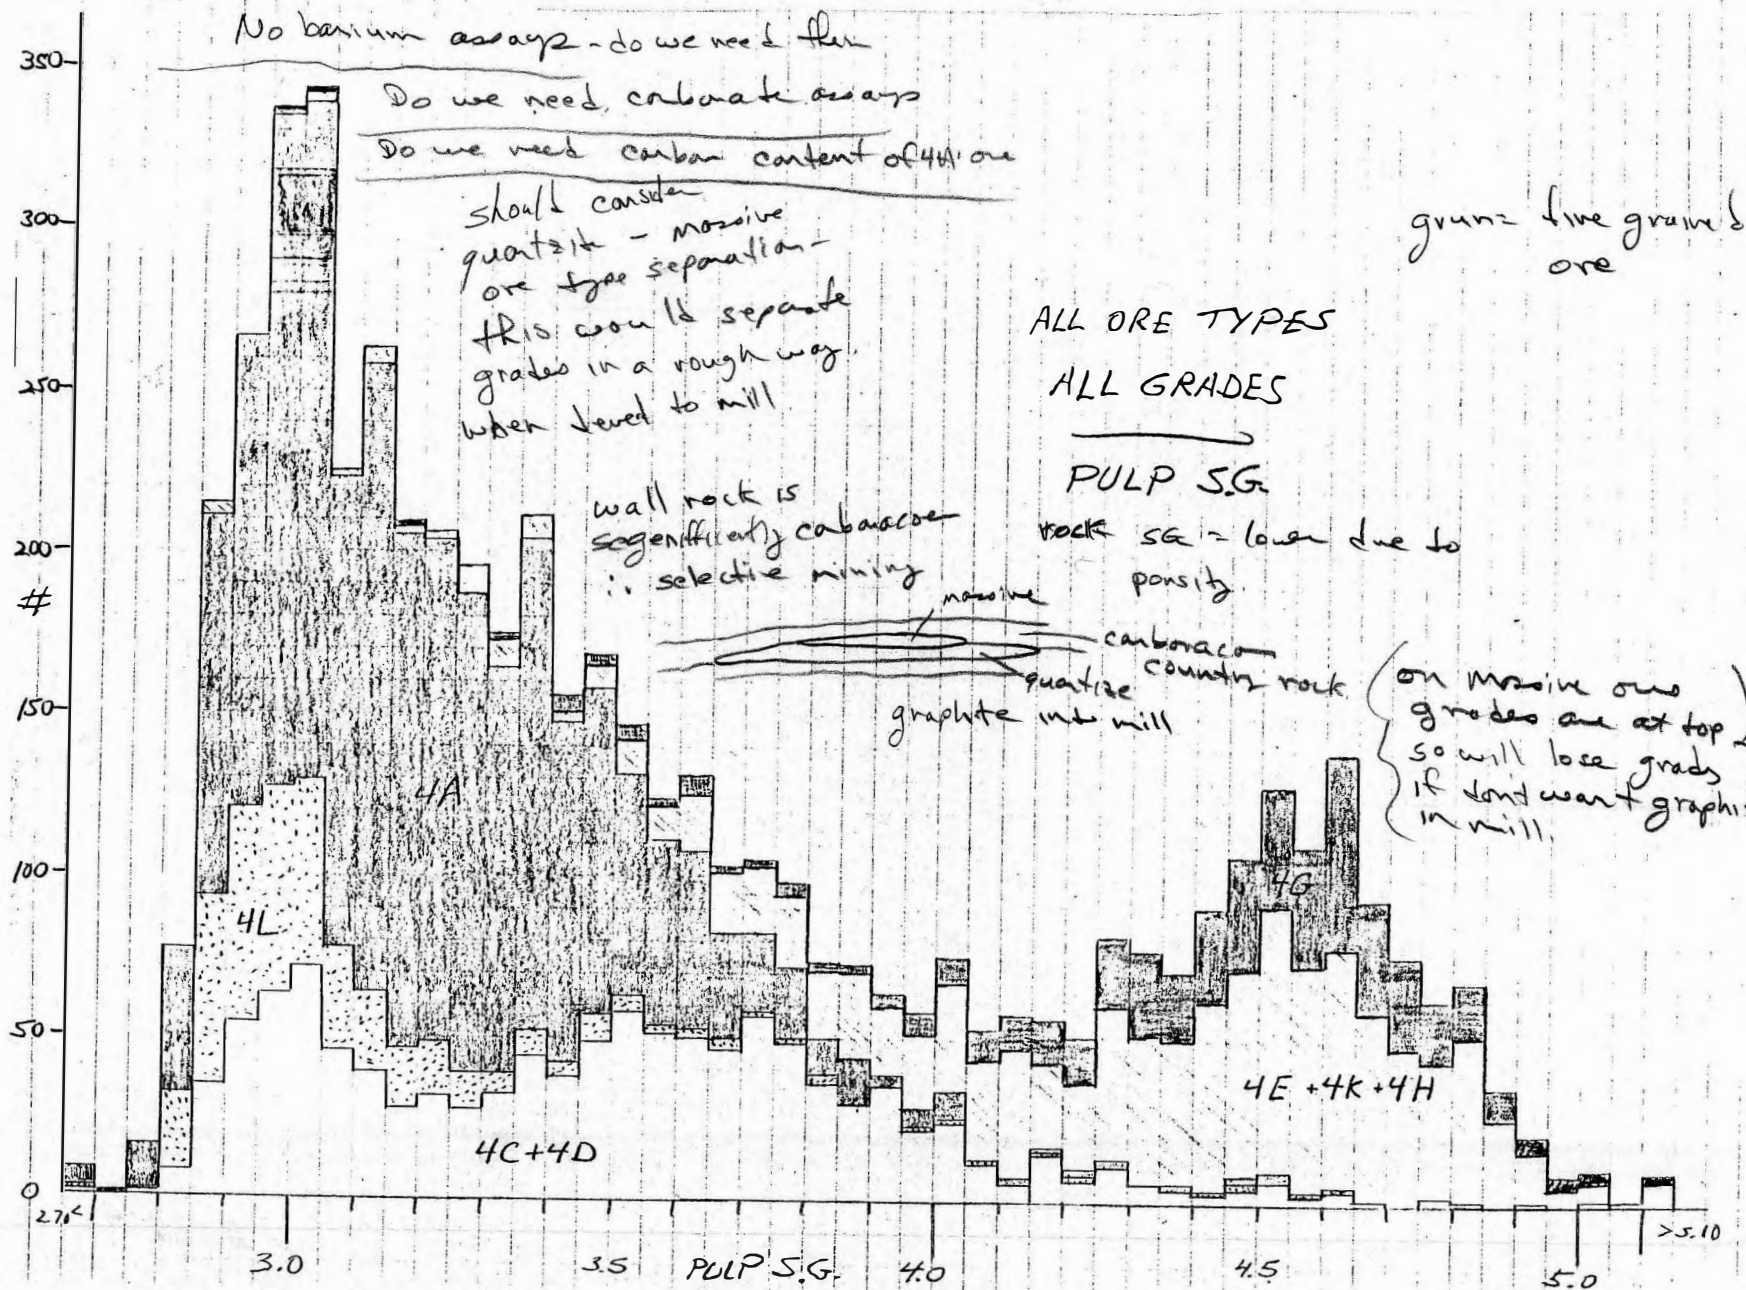 No barium assays - do we need them
Do we need carbonate assays
Do we need carbon content of 4A ore
should consider
quartzite - massive
ore type separation -
this would separate
grades in a rough way
when feed to mill
grun = fine grained
ore
ALL ORE TYPES
ALL GRADES
PULP S.G.
rock SG = lower due to
porsity.
wall rock is
segenifficently
∴ selective mining
massive
country rock
graphite into mill
on massive
grades are at top
so will lose grads
if dont want graphi
in mill.
350
300
250
200
#
150
100
50
0
4A
4L
4G
4C+4D
4E+4K+4H
3.0
3.5
PULP S.G.
4.0
4.5
5.0
>5.10